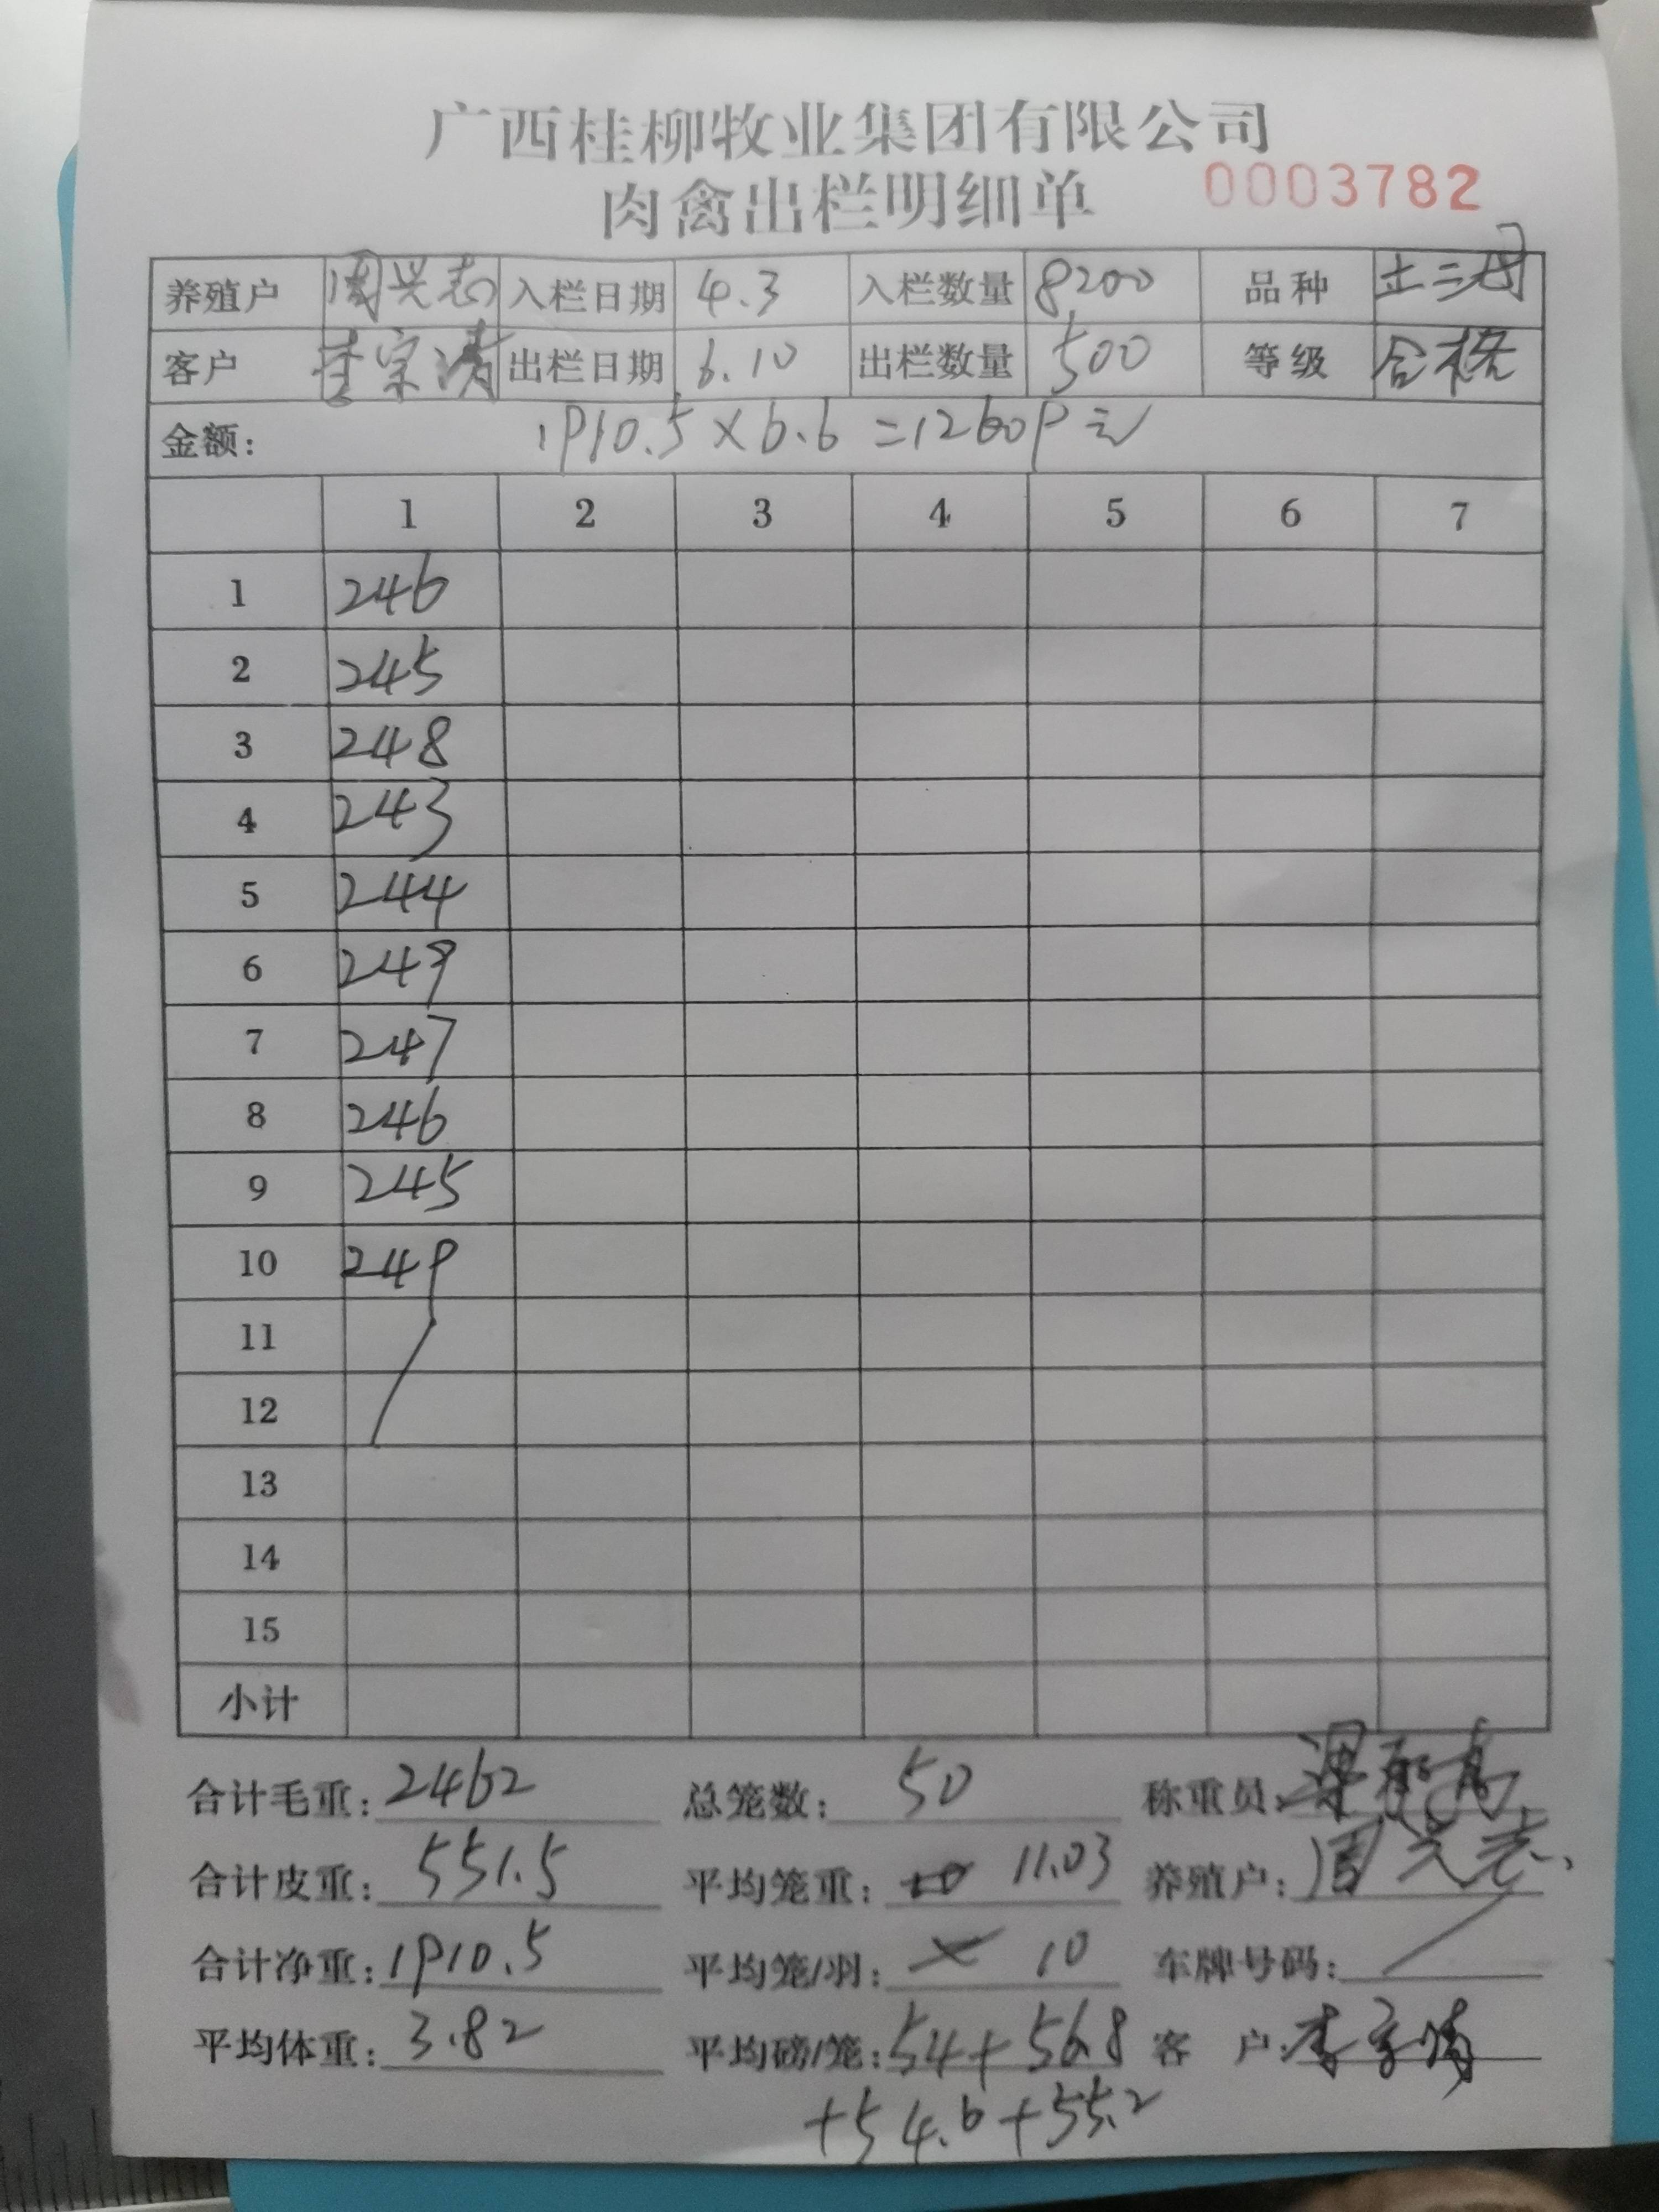 广西桂柳牧业集团有限公司
肉禽出栏明细单 0003782
养殖户 周兴志 入栏日期 4.3 入栏数量 8200 品种 土二母
客户 李宗清 出栏日期 6.10 出栏数量 500 等级 合格
金额: 1910.5×6.6=12609元
1 2 3 4 5 6 7
1 246
2 245
3 248
4 243
5 244
6 249
7 247
8 246
9 245
10 249
11
12
13
14
15
小计
合计毛重: 2462 总笼数: 50 称重员:
合计皮重: 551.5 平均笼重: 11.03 养殖户: 周兴志
合计净重: 1910.5 平均笼/羽: 10 车牌号码: /
平均体重: 3.82 平均磅/笼: 54+56.8 客 户: 李宗清
+54.6+55.2